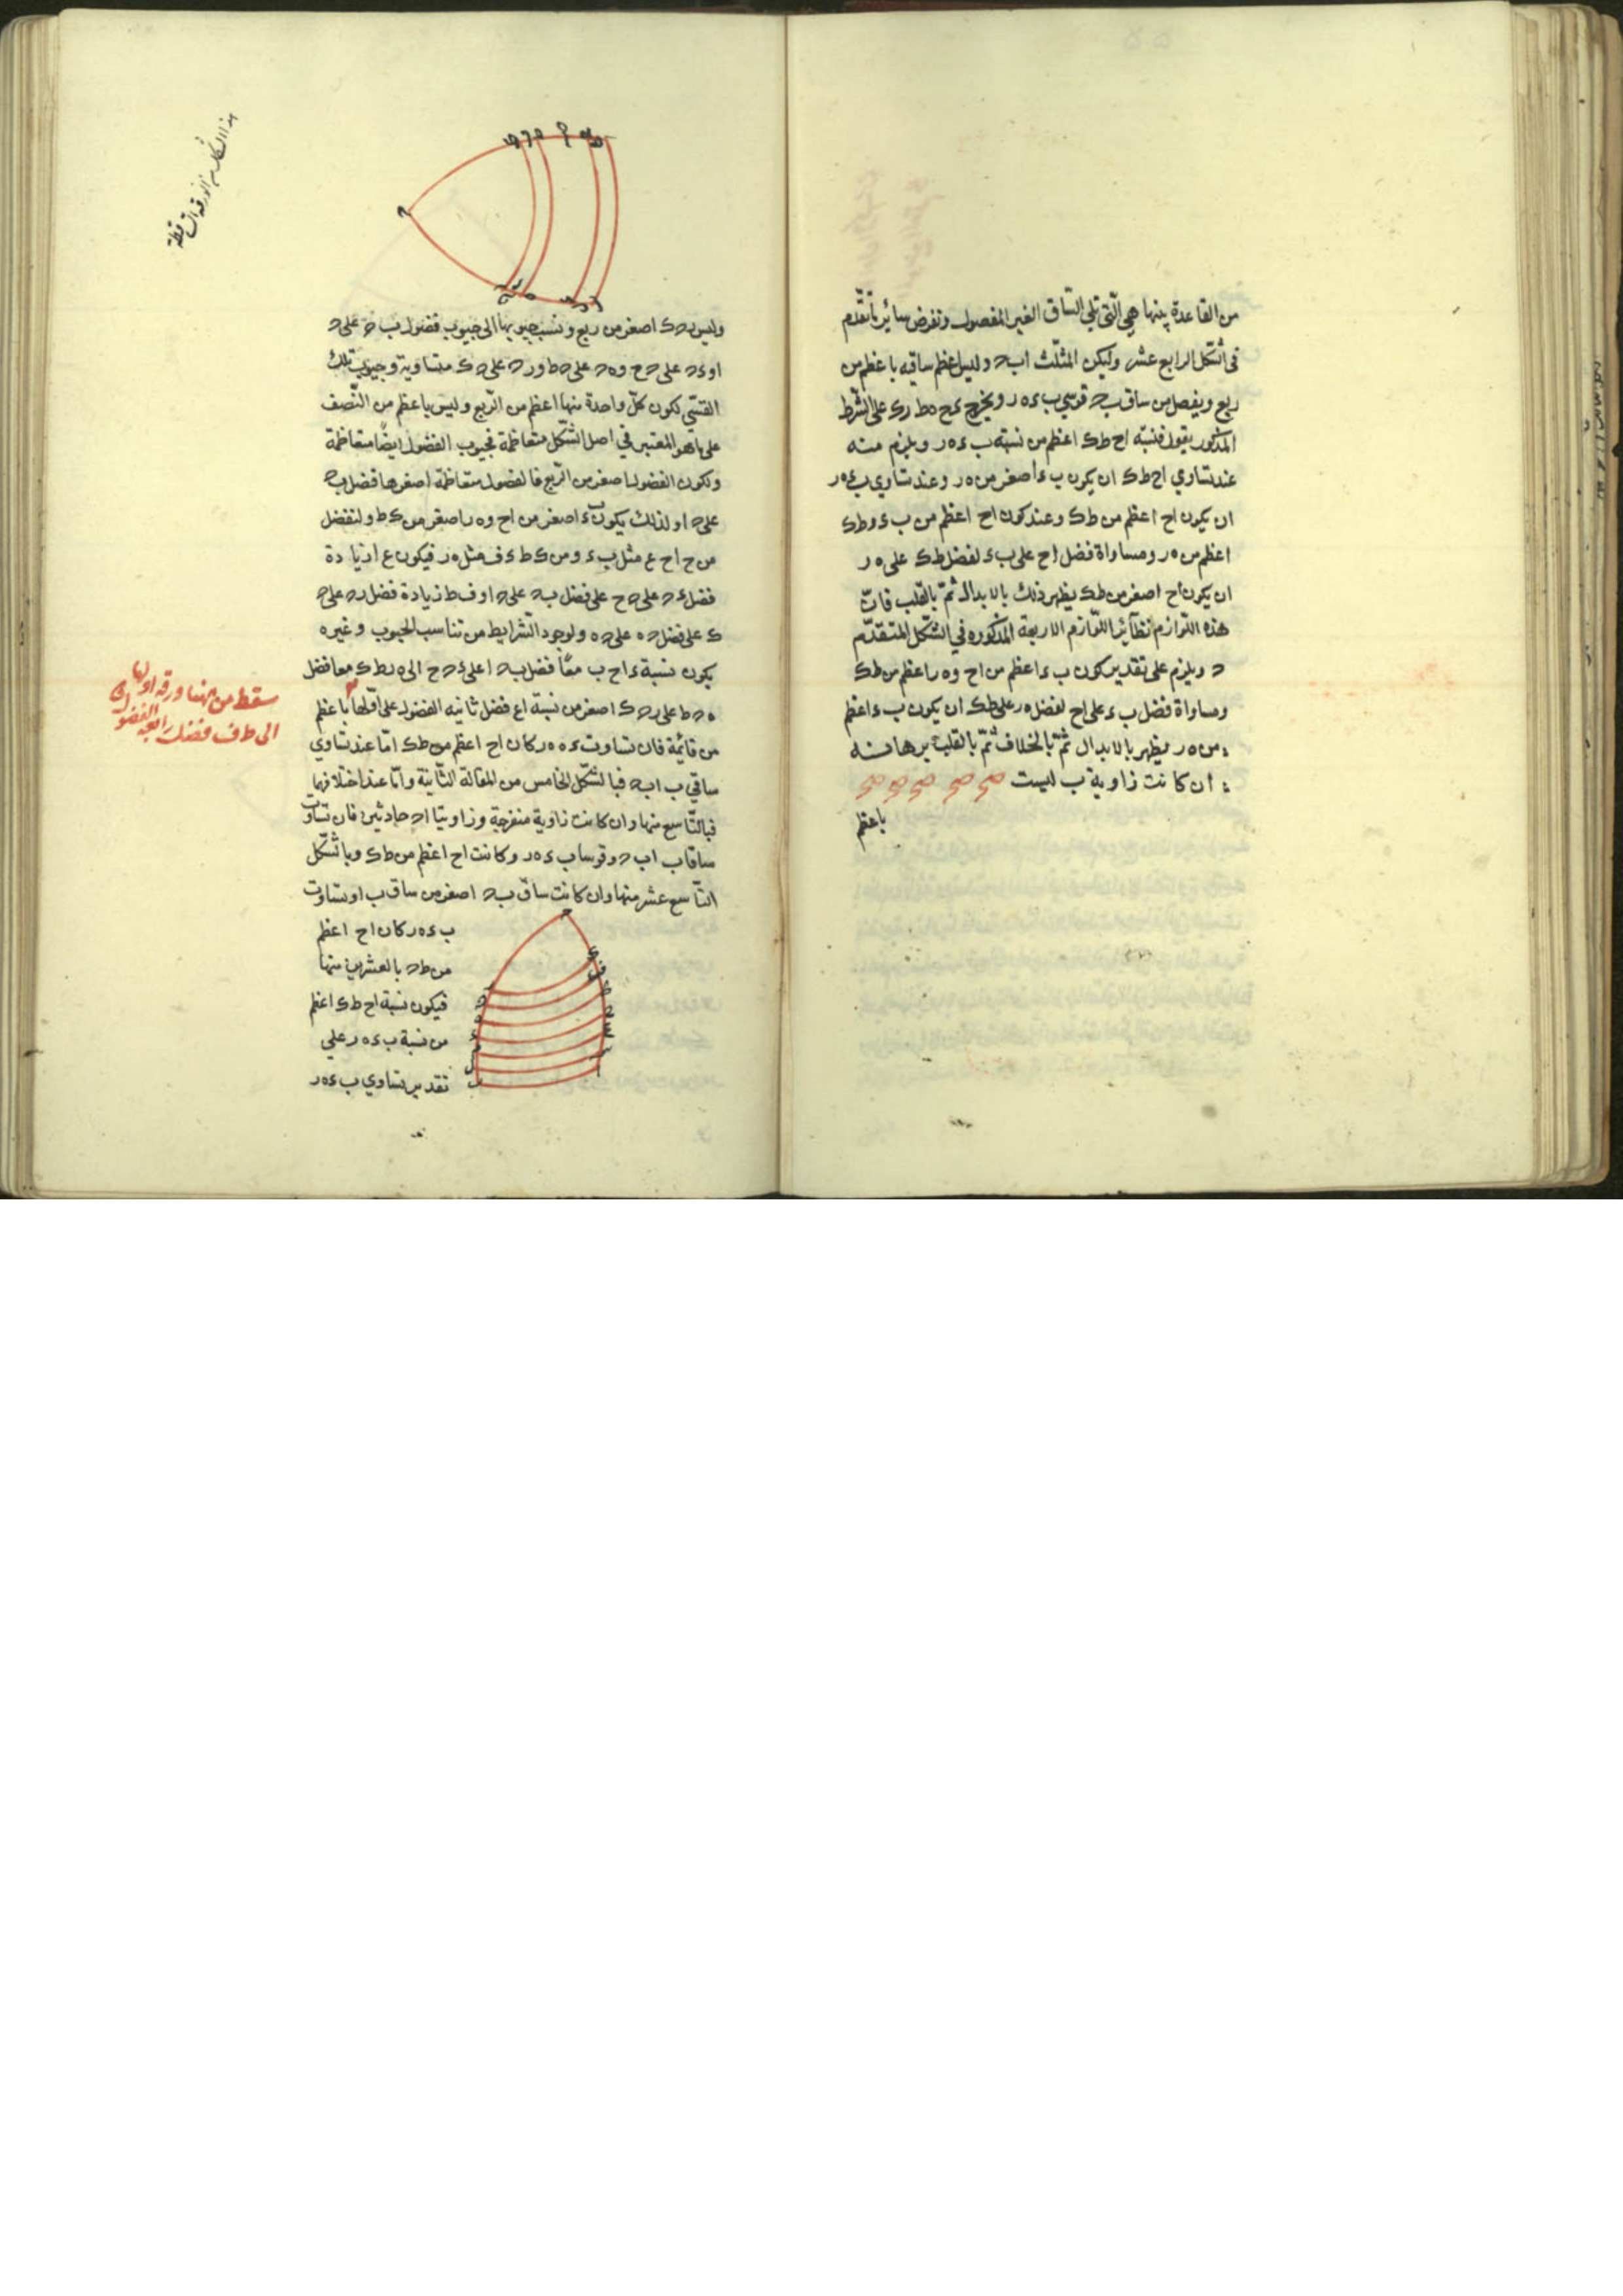 من القاعدة بينها هي الّتي تلي السّاق الغير المفصول ونفرض سائر ما تقدّم
في الشكل الرابع عشر وليكن المثلّث اب ح وليس اعظم ساقيه باعظم من
ربع ويفصل من ساق ب ح قوسي ب ء ه ر ويخرج ء ح ه ط ر ك على الشرط
المذكور يقول فنسبة ا ح ط ك اعظم من نسبة ب ء ه ر ويلزم منه
عند تساوي ا ح ط ك ان يكون ب ء اصغر من ه ر وعند تساوي ب ء ه ر
ان يكون ا ح اعظم من ط ك وعند كون ا ح اعظم من ب ء و ط ك
اعظم من ه ر ومساواة فضل ا ح على ب ء لفضل ط ك على ه ر
ان يكون ا ح اصغر من ط ك يظهر ذلك بالابدال ثمّ بالقلب فانّ
هذه اللّوازم نظائر اللّوازم الاربعة المذكوره في الشكل المتقدّم
ويلزم على تقدير كون ب ء اعظم من ا ح و ه ر اعظم من ط ك
ومساواة فضل ب ء على ا ح لفضل ه ر على ط ك ان يكون ب ء اعظم
من ه ر ويظهر بالابدال ثمّ بالخلاف ثمّ بالقلب برهانه
ان كانت زاوية ب ليست
باعظم
هذا الشكل من الورقة الساقطة
وليس ر ح ك اصغر من ربع ونسب جيوبها الى جيوب فضول ب ح على ح
ا و ء ح على ح ح و ه ح على ح ط و ر ح على ح ك متساوية وجيوب تلك
القسيّ لكون كلّ واحدة منها اعظم من الرّبع وليس باعظم من النّصف
على ما هو المعتبر في اصل الشّكل متعاظمة فجيوب الفضول ايضًا متعاظمة
ولكون الفضول اصغر من الرّبع فالفضول متعاظمة اصغرها فضل ب ح
على ح ا ولذلك يكون ب ء اصغر من ا ح و ه ر اصغر من ك ط ولنفصل
من ح ا ح ع مثل ب ء ومن ك ط ك ف مثل ه ر فيكون ع ا زيادة
فضل ء ح على ح ح على فضل ب ح على ح ا و ف ط زيادة فضل ر ح على ح
ك على فضل ح ه على ح ه ولوجود الشّرايط من تناسب الجيوب وغيره
يكون نسبة ء ا ح ب معًا فضل ب ح ا على ء ح ح الى ه ر ط ك معا فضل
ه ح ط على ر ح ك اصغر من نسبة ا ع فضل ثانيه الفضول على اوّلها باعظم
من قائمة فان تساوت ب ء ه ر كان ا ح اعظم من ط ك امّا عند تساوي
ساقي ب ا ب ح فبالشّكل الخامس من المقالة الثّانية وامّا عند اختلافهما
فبالتّاسع منها وان كانت زاوية منفرجة وزاويتا ا ح حادّتين فان تساوت
ساقا ب ا ب ح وقوسا ب ء ه ر وكانت ا ح اعظم من ط ك وبالشّكل
التّاسع عشر منها وان كانت ساق ب ح اصغر من ساق ب ا وتساوت
ب ء ه ر كان ا ح اعظم
من ط ح بالعشرين منها
فيكون نسبة ا ح ط ك اعظم
من نسبة ب ء ه ر على
تقدير تساوي ب ء ه ر
سقط من ههنا ورقه اولها
الى ط ف فضل رابعه الفضول